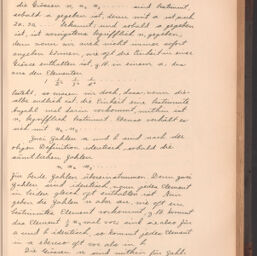 die Grössen n, n₁, n₂ ········ sind bestimmt,
sobald a gegeben ist, denn mit a ist auch
bekannt, und sobald a gegeben
ist, ist wenigstens begrifflich n gegeben,
denn wenn wir auch nicht immer sofort
angeben können, wie oft die Einheit eine
Grösse enthalten ist, z.B. in einem a, das
aus den Elementen
1 1/2 1/3 ······
besteht, so wissen wir doch, dass, wenn die-
selbe endlich ist, die Einheit eine bestimmte
Anzahl mal darin vorkommt, mithin ist
n begrifflich bestimmt. Ebenso verhält es
sich mit n₁, n₂ ······
Zwei Zahlen a und b sind nach der
obigen Definition identisch, sobald die
sämtlichen Zahlen
n, n₁, n₂ ······
für beide Zahlen übereinstimmen. Denn zwei
Zahlen sind identisch, wenn jedes Element
in beiden gleich oft enthalten ist. Nun
geben die Zahlen n aber an, wie oft ein
bestimmtes Element vorkommt, z.B. kommt
das Element
a und b identisch, so kommt jedes Element
in a ebenso oft vor als in b.
Die Grössen n sind mithin für Zahl-